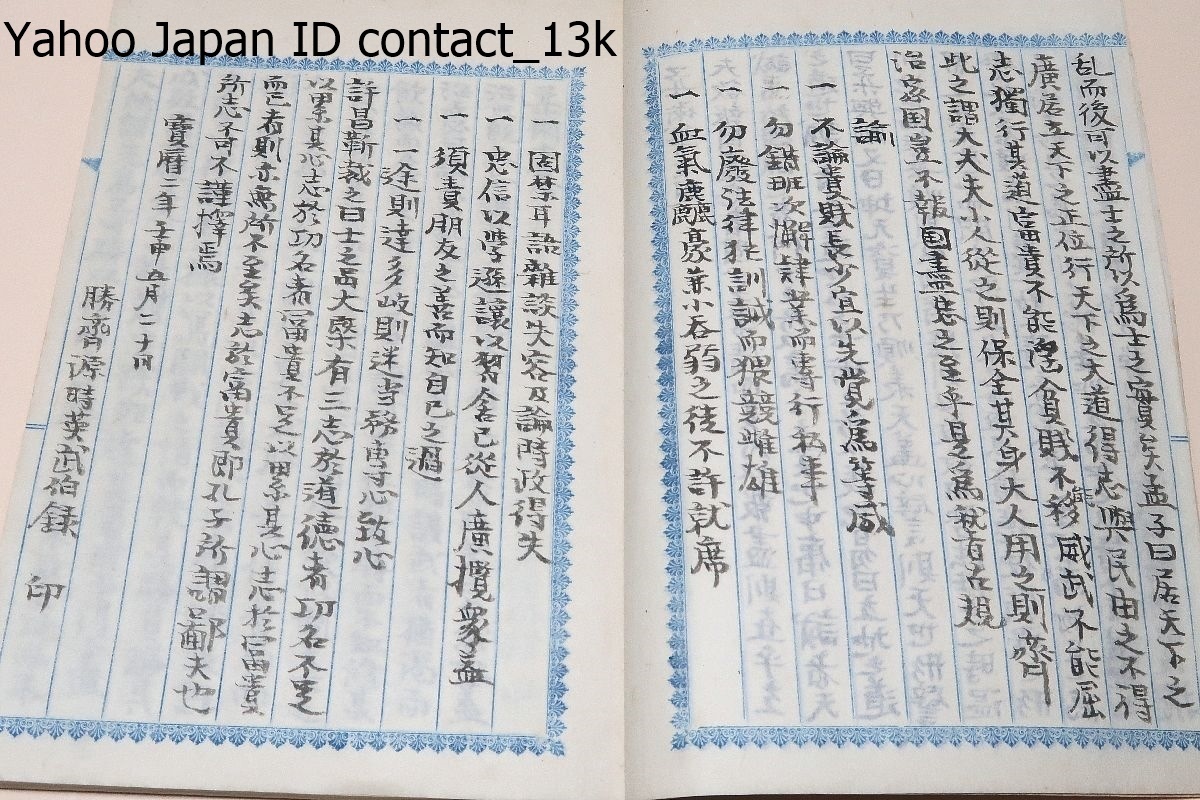 Yahoo Japan ID contact_13k
乱而後可以盡士之所以為士之實矣孟子曰居天下之
廣居立天下之正位行天下之大道得志與民由之不得
志獨行其道富貴不能淫貧賤不能移威武不能屈
此之謂大丈夫小人從之則保全其身大人用之則齊
治家国豈不報国盡忠之至乎是為就首占規
諭
一 不論貴賤長少宜以先覚為等威
一 勿錯班次懈肄業而專行私事
一 勿廢法律狂訓誡而猥競雌雄
一 血氣麁豪兼小吞弱之徒不許就席
一 固禁耳語雜談失容及論時政得失
一 忠信以學遜讓以習舍己從人廣攬衆益
一 須責朋友之善而知自己之過
一 一途則達多岐則迷当務専心致心
許昌靳裁之曰士之品大槩有三志於道德者功名不足
以累其心志於功名者冨貴不足以累其心志於冨貴
而已者則亦無所不至矣志於富貴即孔子所謂鄙夫也
所志不可不謹擇焉
寶暦二年壬申五月二十日
勝齊源時英武伯録 印